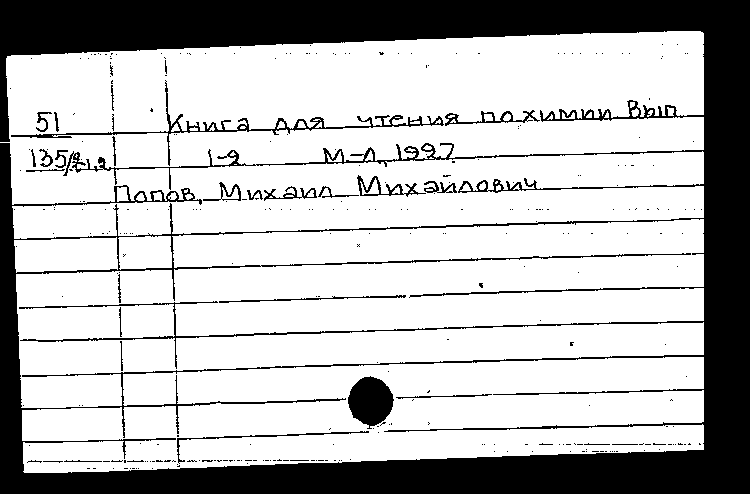 51 Книга для чтения по химии Вып
135/ 1-2 М-Л, 1927
Попов, Михаил Михайлович